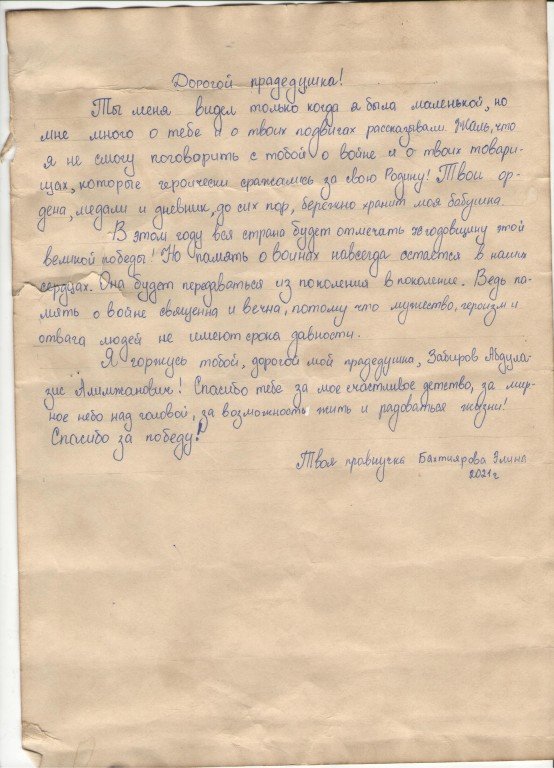 Дорогой прадедушка!
Ты меня видел только когда я была маленькой, но
мне много о тебе и о твоих подвигах рассказывали. Жаль, что
я не смогу поговорить с тобой о войне и о твоих товари-
щах, которые героически сражались за свою Родину! Твои ор-
дена, медали и дневник, до сих пор, бережно хранит моя бабушка.
В этом году вся страна будет отмечать 76 годовщину этой
великой победы! Но память о воинах навсегда остаётся в наших
сердцах. Она будет передаваться из поколения в поколение. Ведь па-
мять о войне священна и вечна, потому что мужество, героизм и
отвага людей не имеют срока давности.
Я горжусь тобой, дорогой мой прадедушка, Забиров Абдула-
зис Алимжанович! Спасибо тебе за мое счастливое детство, за мир-
ное небо над головой, за возможность жить и радоваться жизни!
Спасибо за победу!
Твоя правнучка Бахтиярова Элина
2021г